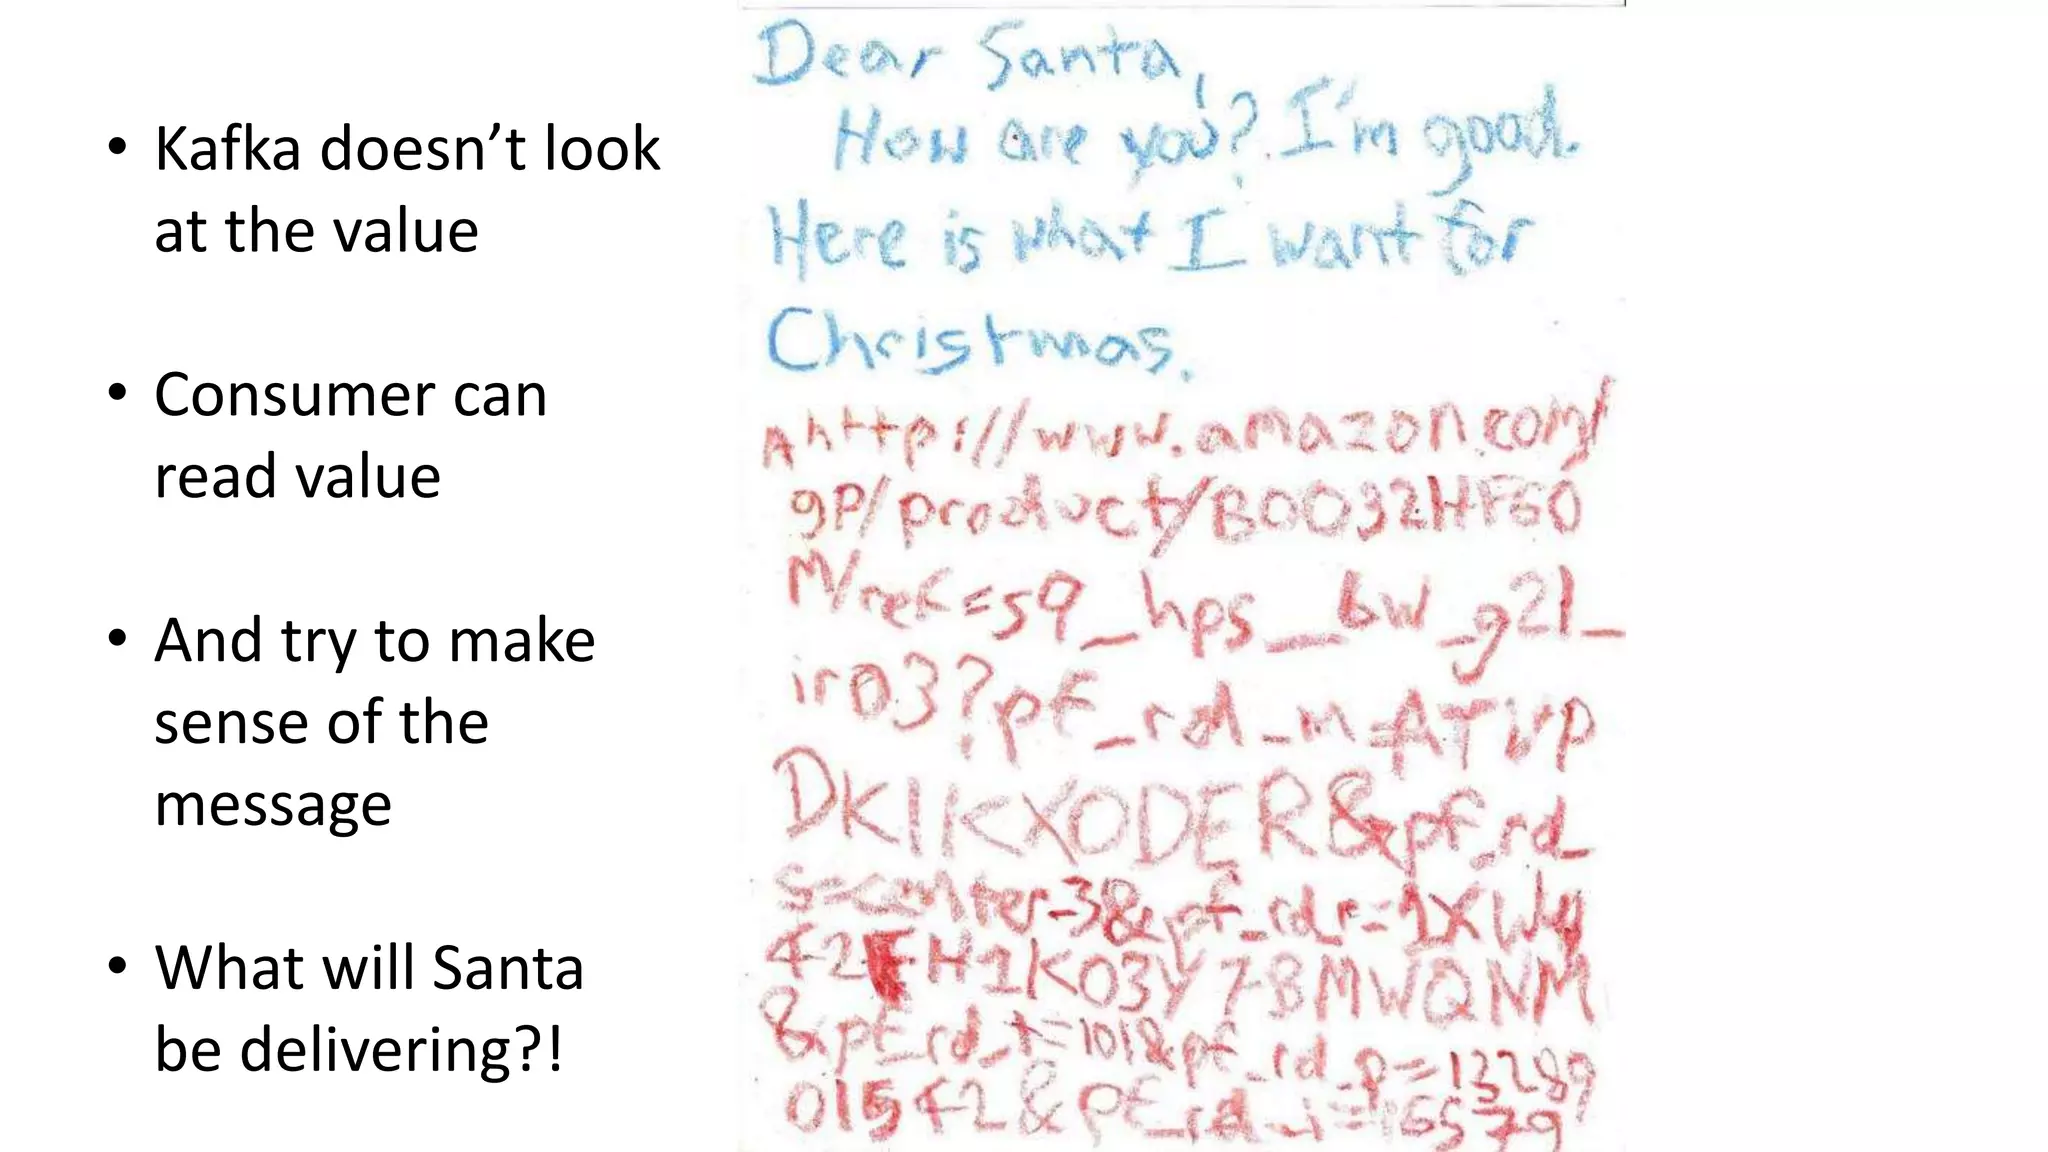 • Kafka doesn’t look
at the value
• Consumer can
read value
• And try to make
sense of the
message
• What will Santa
be delivering?!
Dear Santa,
How are you? I'm good.
Here is what I want for
Christmas.
http://www.amazon.com/
gp/product/B0032HF60
M/ref=s9_hps_bw_g21_
ir03?pf_rd_m=ATVP
DKIKX0DER&pf_rd_
s=center-3&pf_rd_r=1XWY
42FH1K03Y7BMWQNM
&pf_rd_t=101&pf_rd_p=13289
01542&pf_rd_i=166579